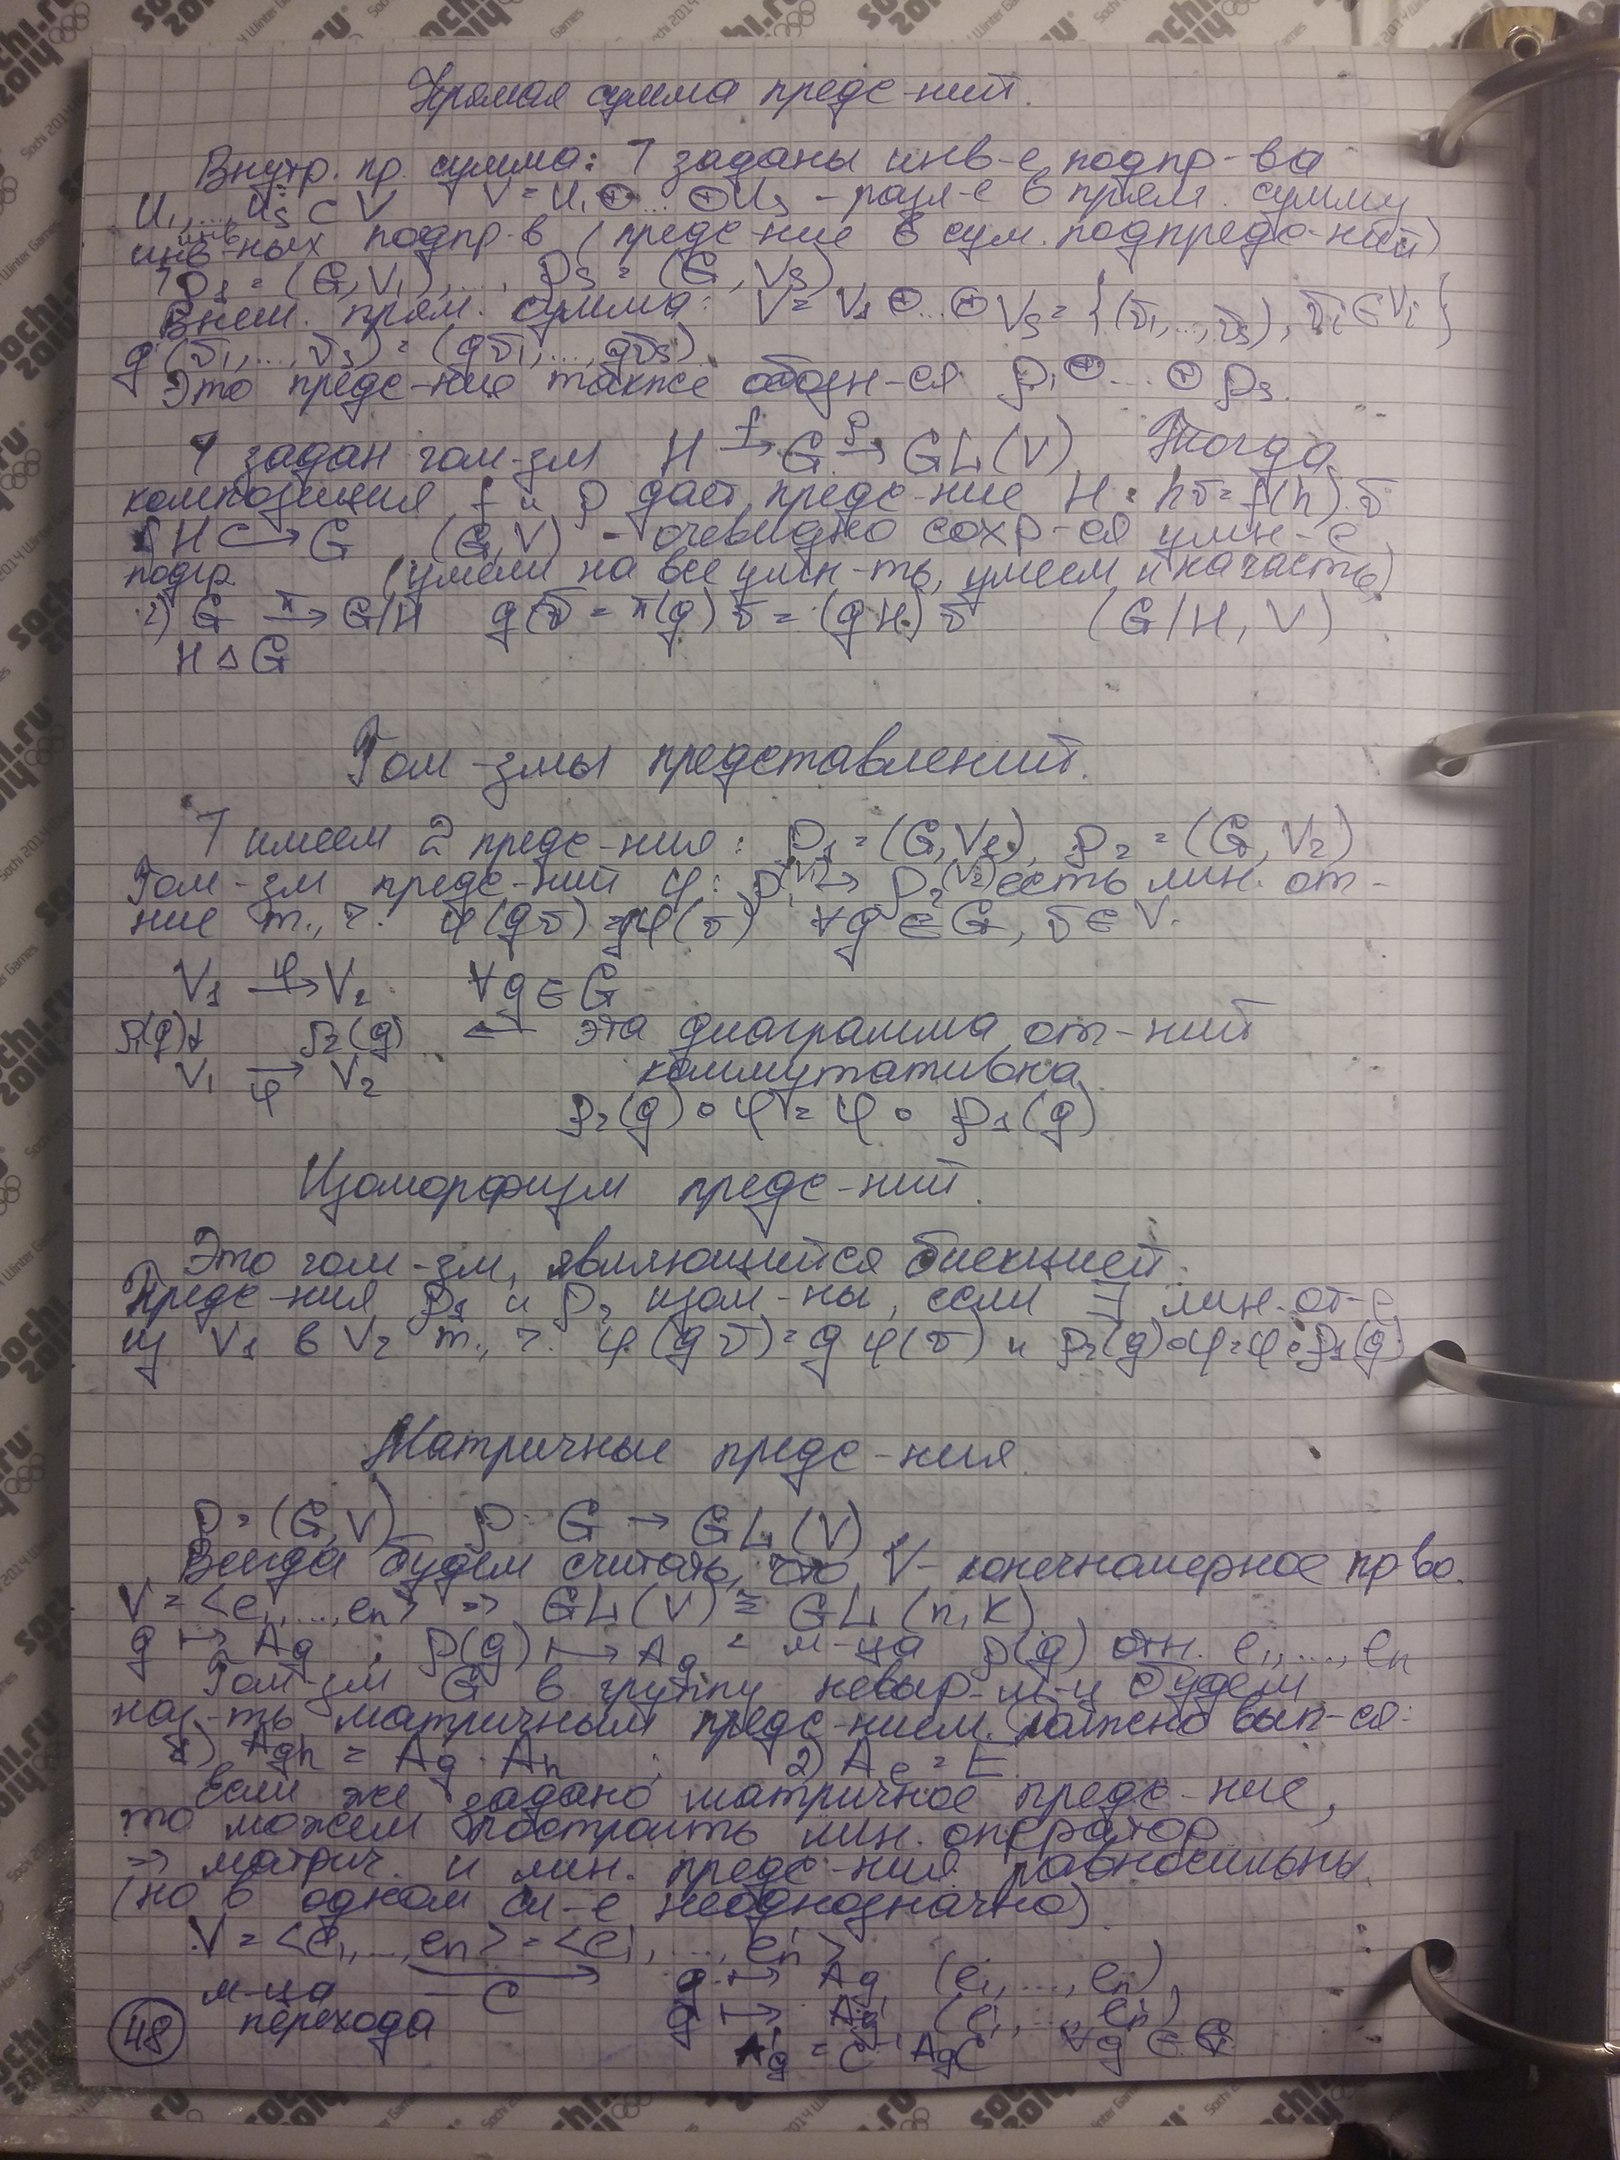 Прямая сумма предс-ний.
Внутр. пр. сумма: ] заданы инв-е подпр-ва
U₁,...,Uₛ ⊂ V V = U₁⊕...⊕Uₛ - разл-е в прям. сумму
инв
инв-ных подпр-в (предс-ние в сум. подпредс-ний)
] ρ₁ = (G,V₁),..., ρₛ = (G,Vₛ)
Внеш. прям. сумма: V = V₁⊕...⊕Vₛ = {(v̄₁,...,v̄ₛ), v̄ᵢ∈Vᵢ}
g(v̄₁,...,v̄ₛ) = (gv̄₁,...,gv̄ₛ)
Это предс-ние также обозн-ся ρ₁⊕...⊕ρₛ.
] задан гом-зм H →f G →ρ GL(V) Тогда
композиция f и ρ дает предс-ние H: hv̄ = f(h)v̄
H ↪ G (G,V) - очевидно сохр-ся умн-е
подгр. (умели на все умн-ть, умеем и на часть)
2) G →π G/H gv̄ = π(g)v̄ = (gH)v̄ (G/H, V)
H ⊲ G
Гом-змы представлений.
] имеем 2 предс-ния: ρ₁ = (G,V₁), ρ₂ = (G,V₂)
Гом-зм предс-ний φ: ρ₁(V₁) → ρ₂(V₂) есть лин. от-
ние т., ч. φ(gv̄) = gφ(v̄) ∀g∈G, v̄∈V.
V₁ →φ V₂ ∀g∈G
ρ₁(g)↓ ρ₂(g) ← эта диаграмма от-ний
V₁ →φ V₂ коммутативна
ρ₂(g)∘φ = φ∘ρ₁(g)
Изоморфизм предс-ний.
Это гом-зм, являющийся биекцией.
Предс-ния ρ₁ и ρ₂ изом-ны, если ∃ лин. от-е
из V₁ в V₂ т., ч. φ(gv̄) = gφ(v̄) и ρ₂(g)∘φ = φ∘ρ₁(g)
Матричные предс-ния
ρ = (G,V) ρ: G → GL(V)
Всегда будем считать, что V - конечномерное пр-во.
V = <e₁,...,eₙ> => GL(V) ≅ GL(n,K)
g ↦ Ag ; ρ(g) ↦ Ag = м-ца ρ(g) отн. e₁,...,eₙ
Гом-зм G в группу невыр. м-ц будем
наз-ть матричным предс-нием. Должно вып-ся:
1) Agh = Ag·Ah ; 2) Ae = E.
Если же задано матричное предс-ние,
то можем построить лин. оператор
=> матрич. и лин. предс-ния равносильны.
(но в одном сл-е неоднозначно)
V = <e₁,...,eₙ> = <e₁',...,eₙ'>
м-ца C g ↦ Ag (e₁,...,eₙ),
перехода g ↦ Ag' (e₁',...,eₙ')
Ag' = C⁻¹AgC ∀g∈G
48